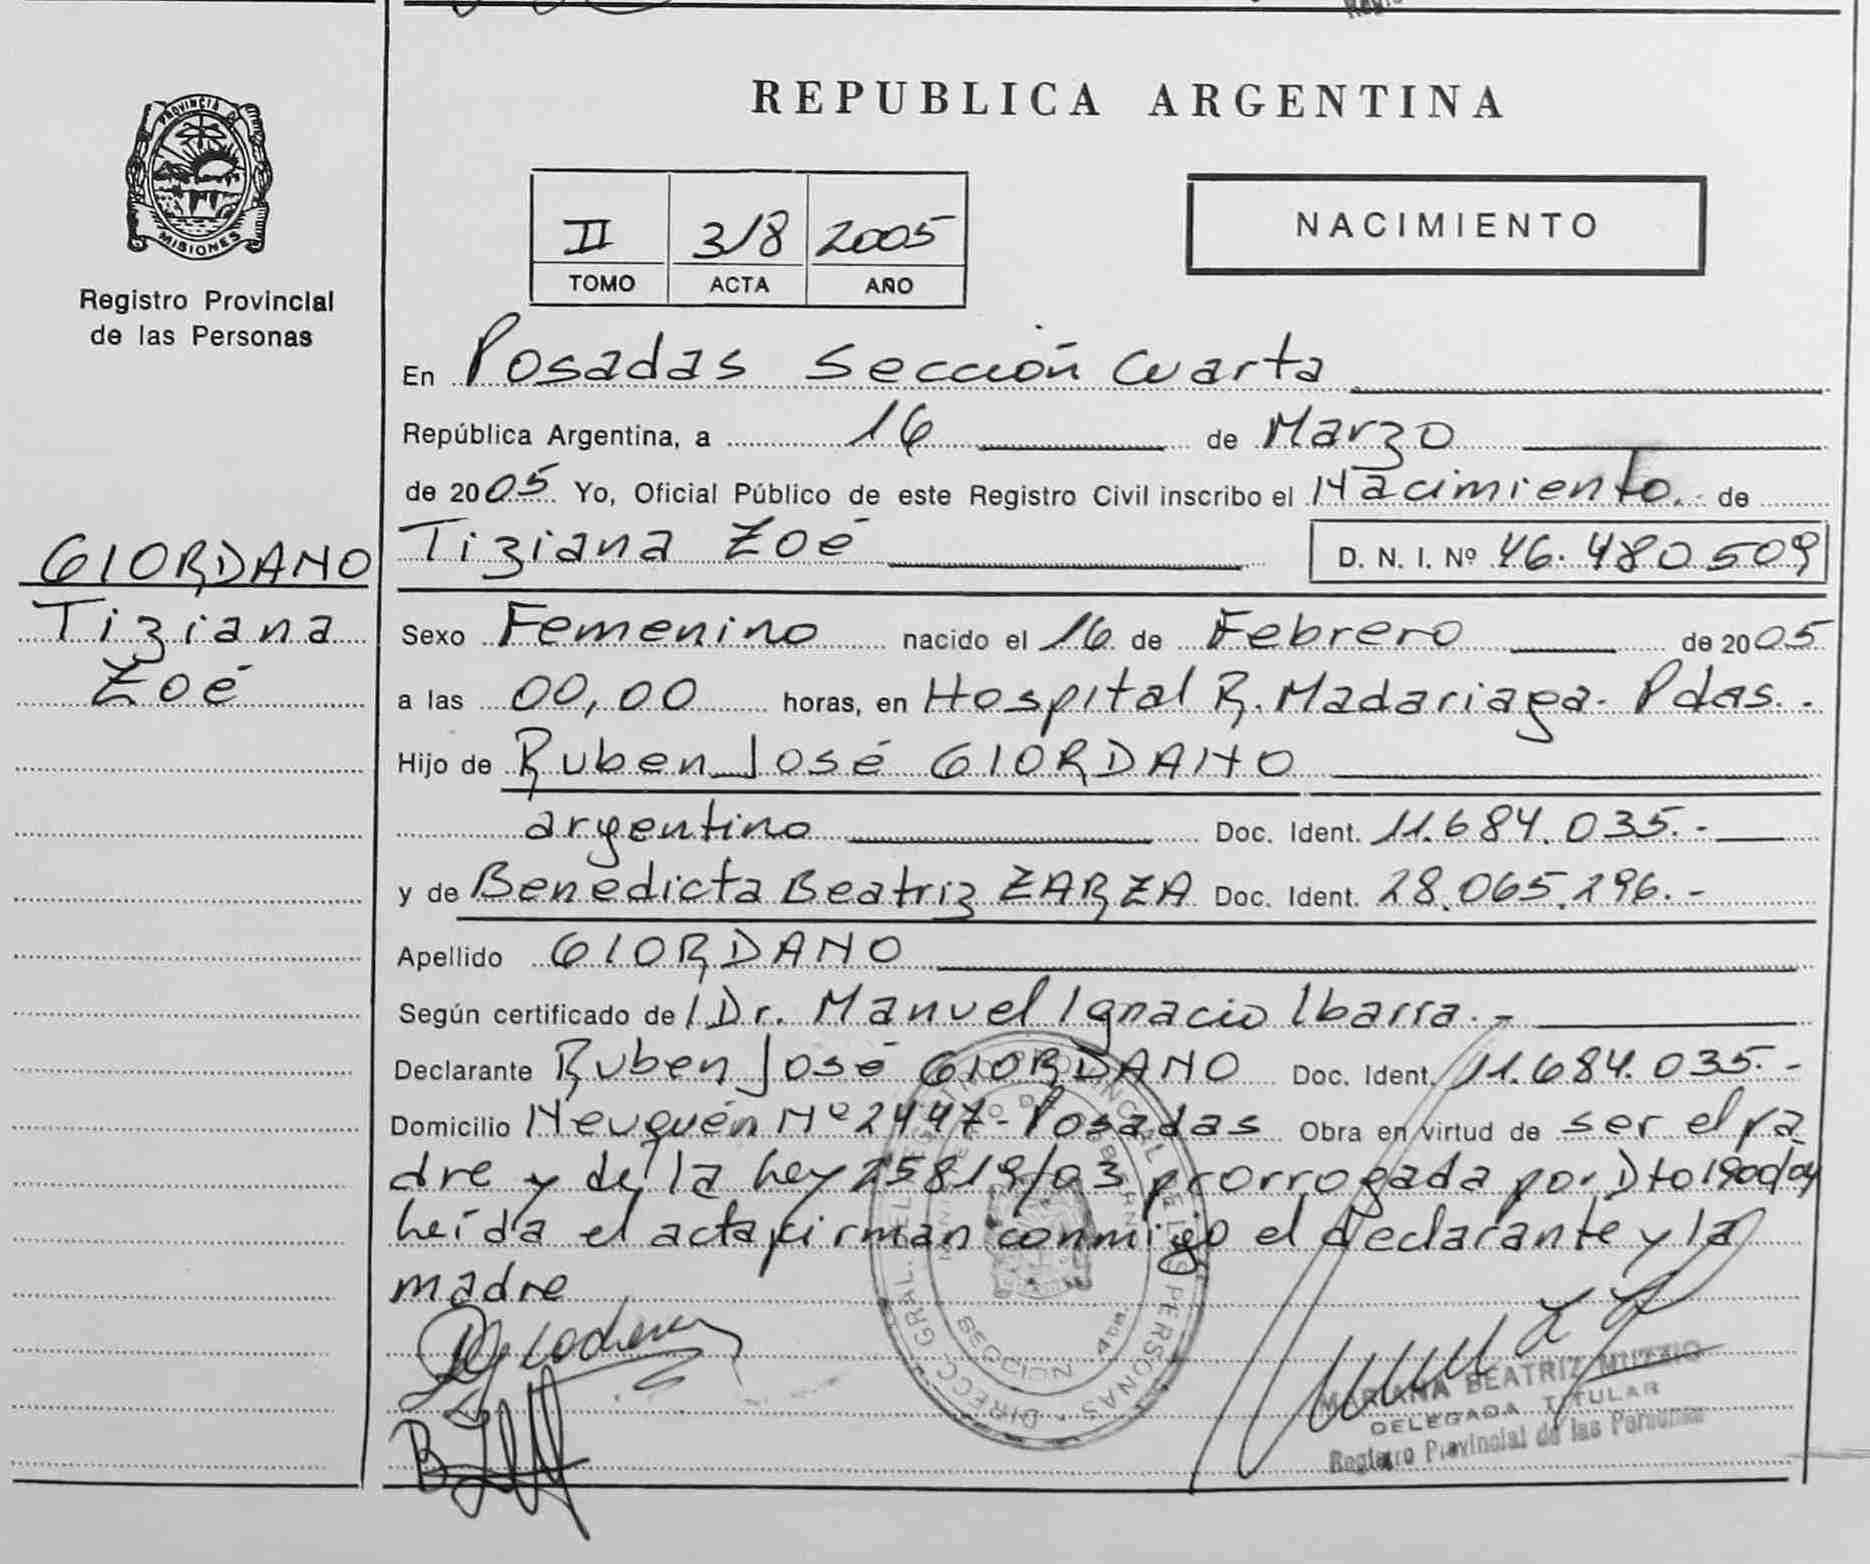 REPUBLICA ARGENTINA
PROVINCIA DE
MISIONES
Registro Provincial
de las Personas
II 318 2005
TOMO ACTA AÑO
NACIMIENTO
En Posadas sección Cuarta
República Argentina, a 16 de Marzo
de 2005 Yo, Oficial Público de este Registro Civil inscribo el Nacimiento.- de
Tiziana Zoé D. N. I. Nº 46.480.509
GIORDANO
Tiziana
Zoé
Sexo Femenino nacido el 16 de Febrero de 2005
a las 00,00 horas, en Hospital R. Madariaga- Pdas.-
Hijo de Ruben José GIORDANO
argentino Doc. Ident. 11.684.035.-
y de Benedicta Beatriz ZARZA Doc. Ident. 28.065.296.-
Apellido GIORDANO
Según certificado de l Dr. Manuel Ignacio Ibarra.-
Declarante Ruben José GIORDANO Doc. Ident. 11.684.035.-
Domicilio Neuquén Nº 2447- Posadas Obra en virtud de ser el pa
dre y de la Ley 25819/03 prorrogada por Dto 1900/04
Leída el acta firman conmigo el declarante y la
madre
MARIANA BEATRIZ MUZZIO
DELEGADA TITULAR
Registro Provincial de las Personas